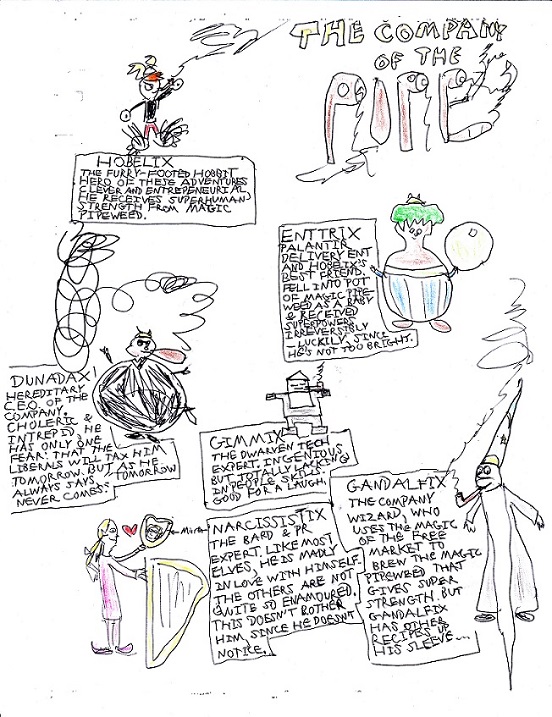 THE COMPANY
OF THE
PIPE
HOBELIX
THE FURRY-FOOTED HOBBIT
HERO OF THESE ADVENTURES
CLEVER AND ENTREPENEURIAL,
HE RECEIVES SUPERHUMAN
STRENGTH FROM MAGIC
PIPEWEED.
ENTTRIX
PALANTIR
DELIVERY ENT
AND HOBELIX'S
BEST FRIEND.
FELL INTO POT
OF MAGIC PIPE-
WEED AS A BABY
& RECEIVED
SUPERPOWERS
IRREVERSIBLY
- LUCKILY, SINCE
HE'S NOT TOO BRIGHT.
DUNADAX
HEREDITARY
C.E.O. OF THE
COMPANY.
CHOLERIC &
INTREPID, HE
HAS ONLY ONE
FEAR: THAT THE
LIBERALS WILL TAX HIM
TOMORROW. BUT AS HE
ALWAYS SAYS, "TOMORROW
NEVER COMES."
GIMMIX
THE DWARVEN TECH
EXPERT. INGENIOUS
BUT TOTALLY LACKING
IN PEOPLE SKILLS.
GOOD FOR A LAUGH.
GANDALFIX
THE COMPANY
WIZARD, WHO
USES THE MAGIC
OF THE FREE
MARKET TO
BREW THE MAGIC
PIPEWEED THAT
GIVES SUPER
STRENGTH. BUT
GANDALFIX
HAS OTHER
RECIPES UP
HIS SLEEVE...
Mirror
NARCISSISTIX
THE BARD & PR
EXPERT. LIKE MOST
ELVES, HE IS MADLY
IN LOVE WITH HIMSELF.
THE OTHERS ARE NOT
QUITE SO ENAMOURED.
THIS DOESN'T BOTHER
HIM, SINCE HE DOESN'T
NOTICE.